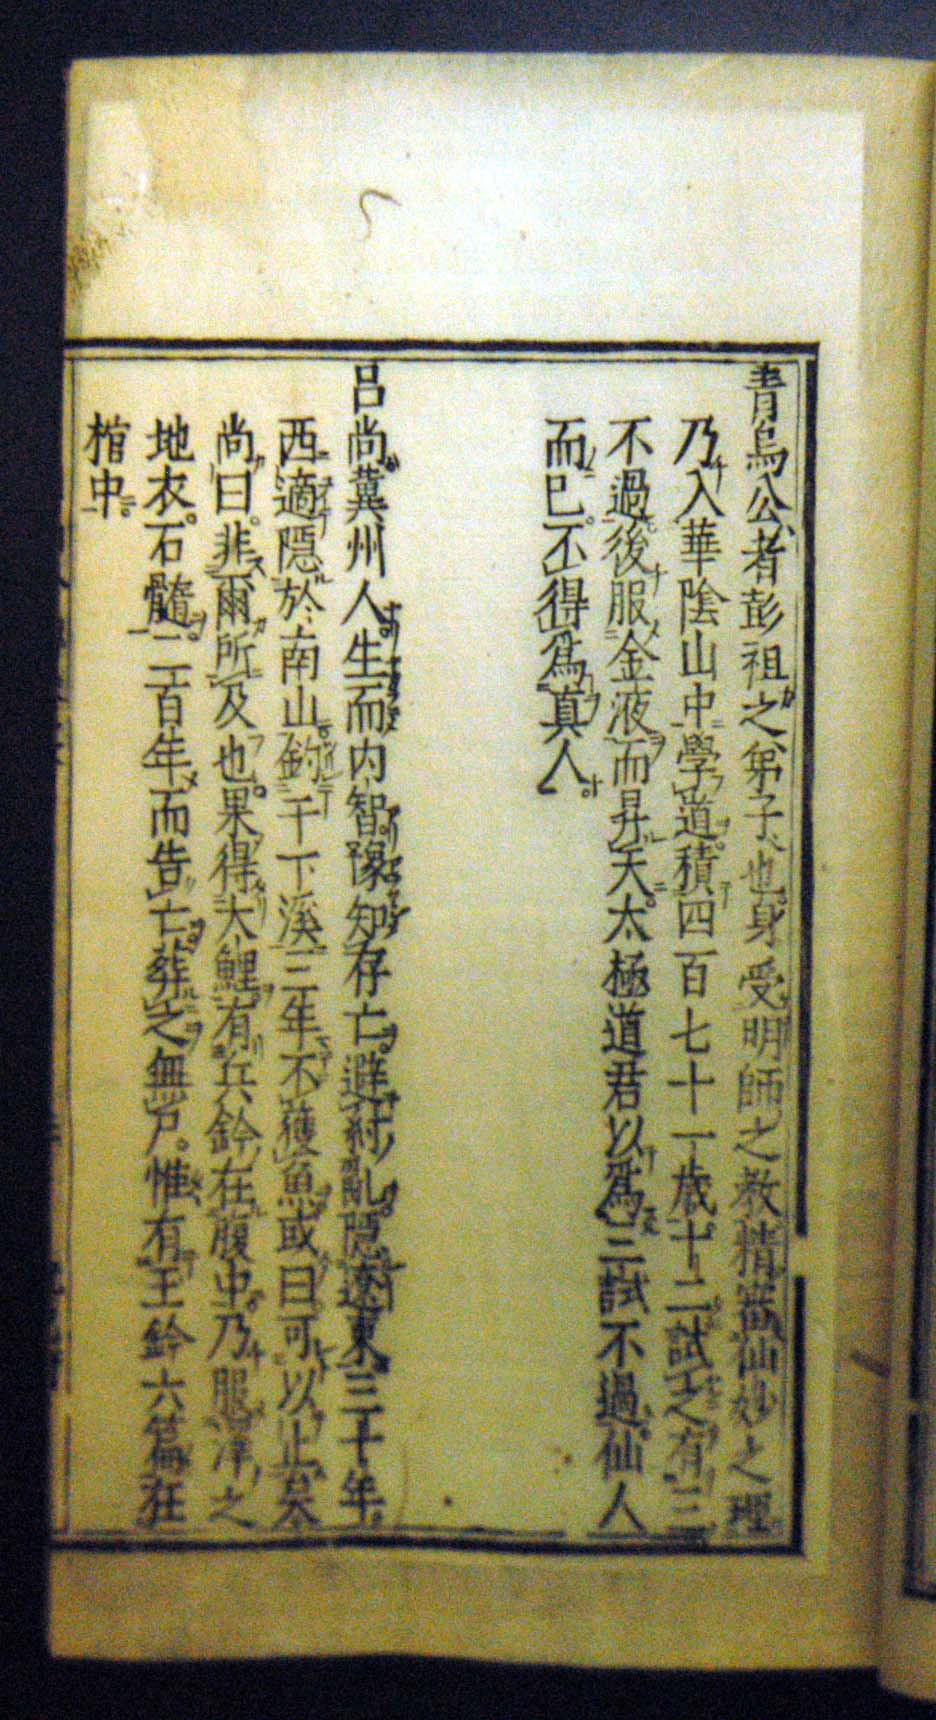 青烏公者彭祖之弟子也身受明師之教精審仙妙之理
乃入華陰山中學道積四百七十一歳十二試之有三
不過後服金液而昇天太極道君以爲三試不過仙人
而已不得爲真人
呂尚冀州人生而内智豫知存亡避紂亂隱遼東三十年
西適隱於南山釣于下溪三年不獲魚或曰可以止矣
尚曰非爾所及也果得大鯉有兵鈐在腹中乃服澤之
地衣石髓二百年而告亡葬之無尸惟有玉鈐六篇在
棺中